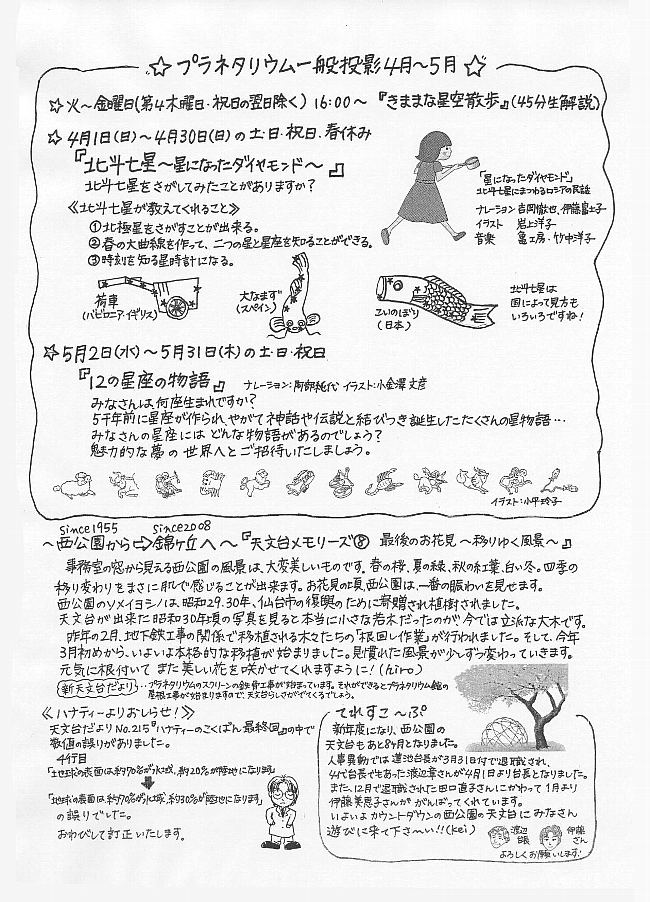 ☆ プラネタリウム一般投影4月～5月 ☆
☆ 火～金曜日(第4木曜日・祝日の翌日除く) 16:00～『きままな星空散歩』(45分生解説)
☆ 4月1日(日)～4月30日(日)の土・日・祝日、春休み
『北斗七星～星になったダイヤモンド～』
北斗七星をさがしてみたことがありますか?
《北斗七星が教えてくれること》
①北極星をさがすことが出来る。
②春の大曲線を作って、二つの星と星座を知ることができる。
③時刻を知る星時計になる。
「星になったダイヤモンド」
北斗七星にまつわるロシアの民話
ナレーション 吉岡徹也、伊藤富士子
イラスト 岩上洋子
音楽 亀工房・竹中洋子
荷車
(バビロニア・イギリス)
大なまず
(スペイン)
こいのぼり
(日本)
北斗七星は
国によって見方も
いろいろですね!
☆5月2日(水)～5月31日(木)の土・日・祝日
『12の星座の物語』 ナレーション:阿部純代 イラスト:小金澤文彦
みなさんは、何座生まれですか?
5千年前に星座が作られ、やがて神話や伝説と結びつき誕生したたくさんの星物語…
みなさんの星座には どんな物語があるのでしょう?
魅力的な夢の世界へとご招待いたしましょう。
イラスト:小平玲子
since1955 since2008
～西公園から⇨錦ケ丘へ～『天文台メモリーズ⑧ 最後のお花見 ～移りゆく風景～』
事務室の窓から見える西公園の風景は、大変美しいものです。春の桜、夏の緑、秋の紅葉、白い冬。四季の
移り変わりをまさに肌で感じることが出来ます。お花見の頃、西公園は、一番の賑わいを見せます。
西公園のソメイヨシノは、昭和29.30年、仙台市の復興のために寄贈され植樹されました。
天文台が出来た昭和30年頃の写真を見ると本当に小さな若木だったのが、今では立派な大木です。
昨年の2月、地下鉄工事の関係で移植される木々たちの「根回し作業」が行われました。そして、今年
3月初めから、いよいよ本格的な移植が始まりました。見慣れた風景が少しずつ変わっていきます。
元気に根付いて また美しい花を咲かせてくれますように!(hiro)
新天文台だより…プラネタリウムのスクリーンの鉄骨工事が始まっています。それができるとプラネタリウム館の
屋根工事が始まりますので、天文台らしさがでてくるでしょう。
《ハナティーよりおしらせ!》
天文台だよりNo.215『ハナティーのこくばん 最終回』の中で
数値の誤りがありました。
4行目
「土地球の表面は約70%が水域、約20%が陸地になります」
「地球の表面は約70%が水域、約30%が陸地になります」
の誤りでした。
おわびして訂正いたします。
てれすこ～ぷ
新年度になり、西公園の
天文台もあと8ケ月となりました。
人事異動では蓮池台長が3月31日付で退職され、
4代台長でもあった渡辺章さんが4月1日より台長となりました。
また、12月で退職された田口直子さんにかわって1月より
伊藤美恵子さんが がんばってくれています。
いよいよカウントダウンの西公園の天文台に みなさん
遊びに来て下さ～い!!(kei)
渡辺
台長
伊藤
さん
よろしくお願いします!